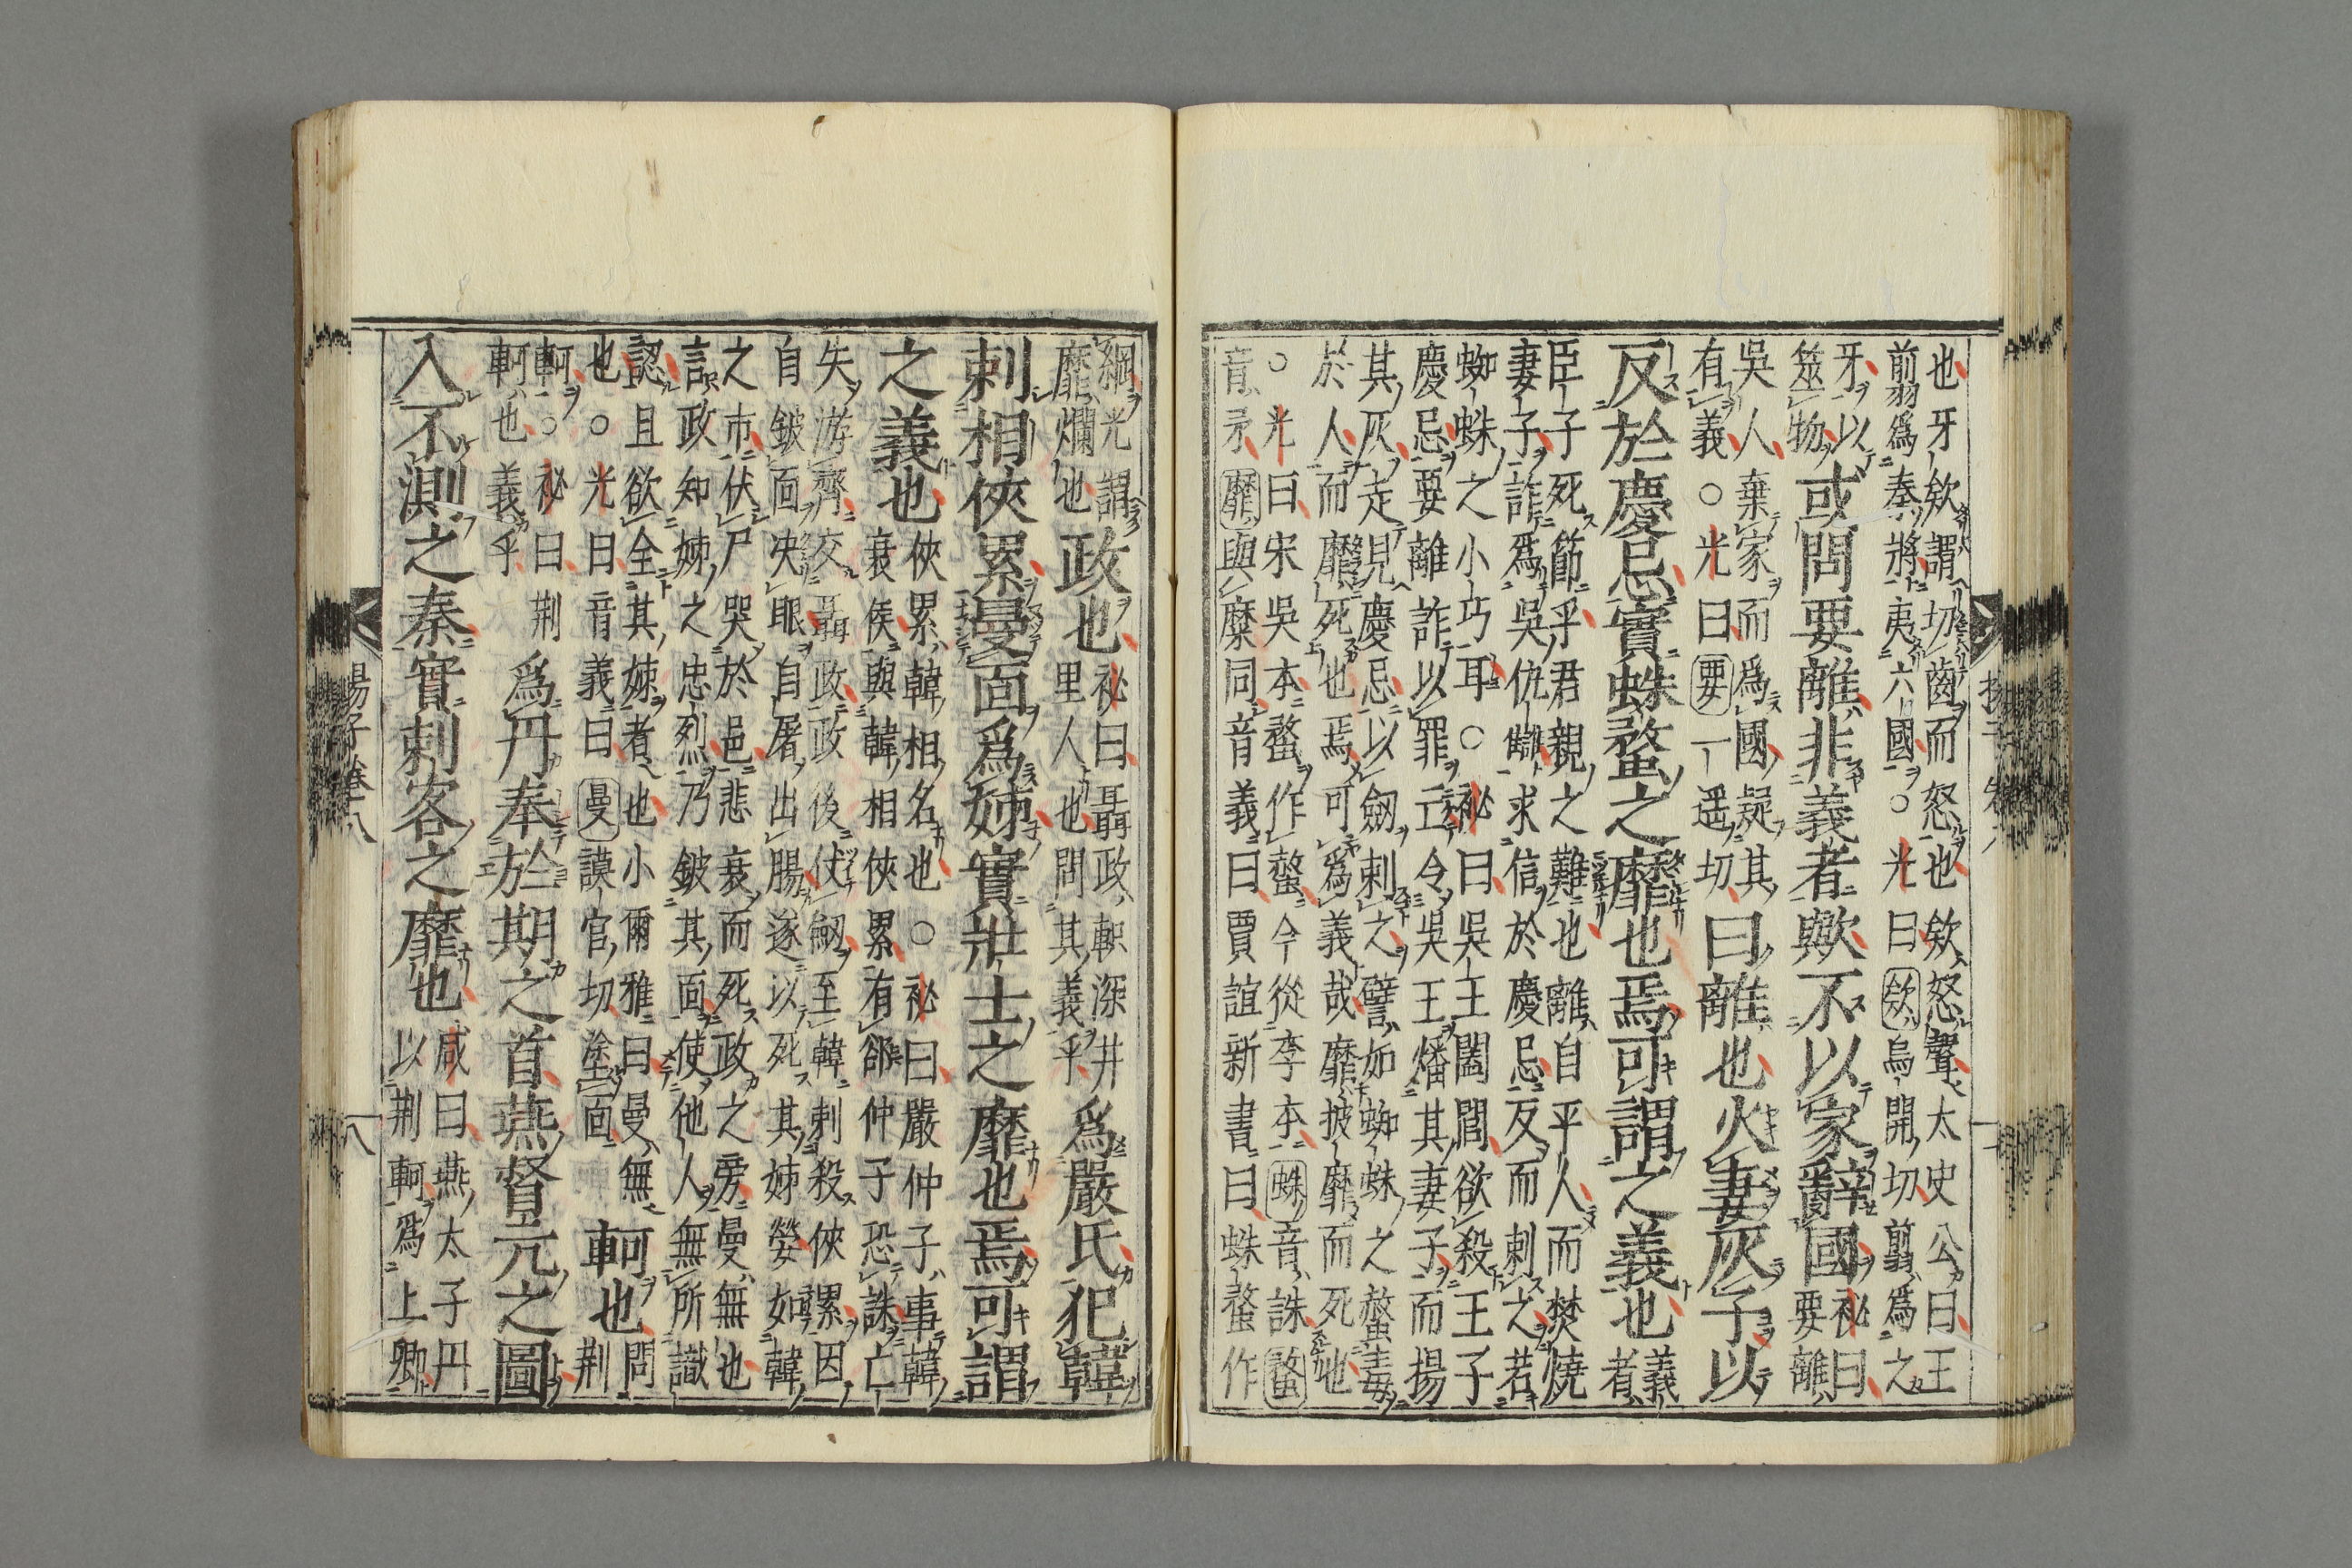 也牙欸謂切齒而怒也欸怒聲太史公曰王
翦爲秦將夷六國○光曰欸烏開切翦爲之
牙以
筮物
或問要離非義者歟不以家辭國
祕曰
要離
吳人棄家而爲國疑其
有義○光曰要一遥切
曰離也火妻灰子以
反於慶忌實蛛蝥之靡也焉可謂之義也
義
者
臣子死節乎君親之難也離自平人而焚燒
妻子詐爲吳仇讎求信於慶忌反而刺之若
蜘蛛之小巧耳○祕曰吳王闔閭欲殺王子
慶忌要離詐以罪亡令吳王燔其妻子而揚
其灰走見慶忌以劒刺之譬如蜘蛛之螫毒
於人而靡死也焉可爲義哉靡披靡而死也
○光曰宋吳本蝥作螫今從李本蛛音誅蝥
音矛靡與糜同音義曰賈誼新書曰蛛蝥作
綱光謂
靡爛也
政也
祕曰聶政軹深井
里人也問其義乎
爲嚴氏犯韓
刺相俠累曼面爲姊實壯士之靡也焉可謂
之義也
俠累韓相名也○祕曰嚴仲子事韓
哀侯與韓相俠累有郤仲子恐誅亡
失游齊交聶政政後仗劒至韓刺殺俠累因
自鈹面决眼自屠出腸遂以死其姊嫈如韓
之市伏尸哭於邑悲哀而死政之旁曼無也
言政知姊之忠烈乃鈹其面使他人無所識
認且欲全其姊者也小爾雅曰曼無
也○光曰音義曰曼謨官切塗面
軻也
問
荊
軻○祕曰荊
軻也義乎
爲丹奉於期之首燕督亢之圖
入不測之秦實刺客之靡也
咸曰燕太子丹
以荊軻爲上卿
揚子卷八
八